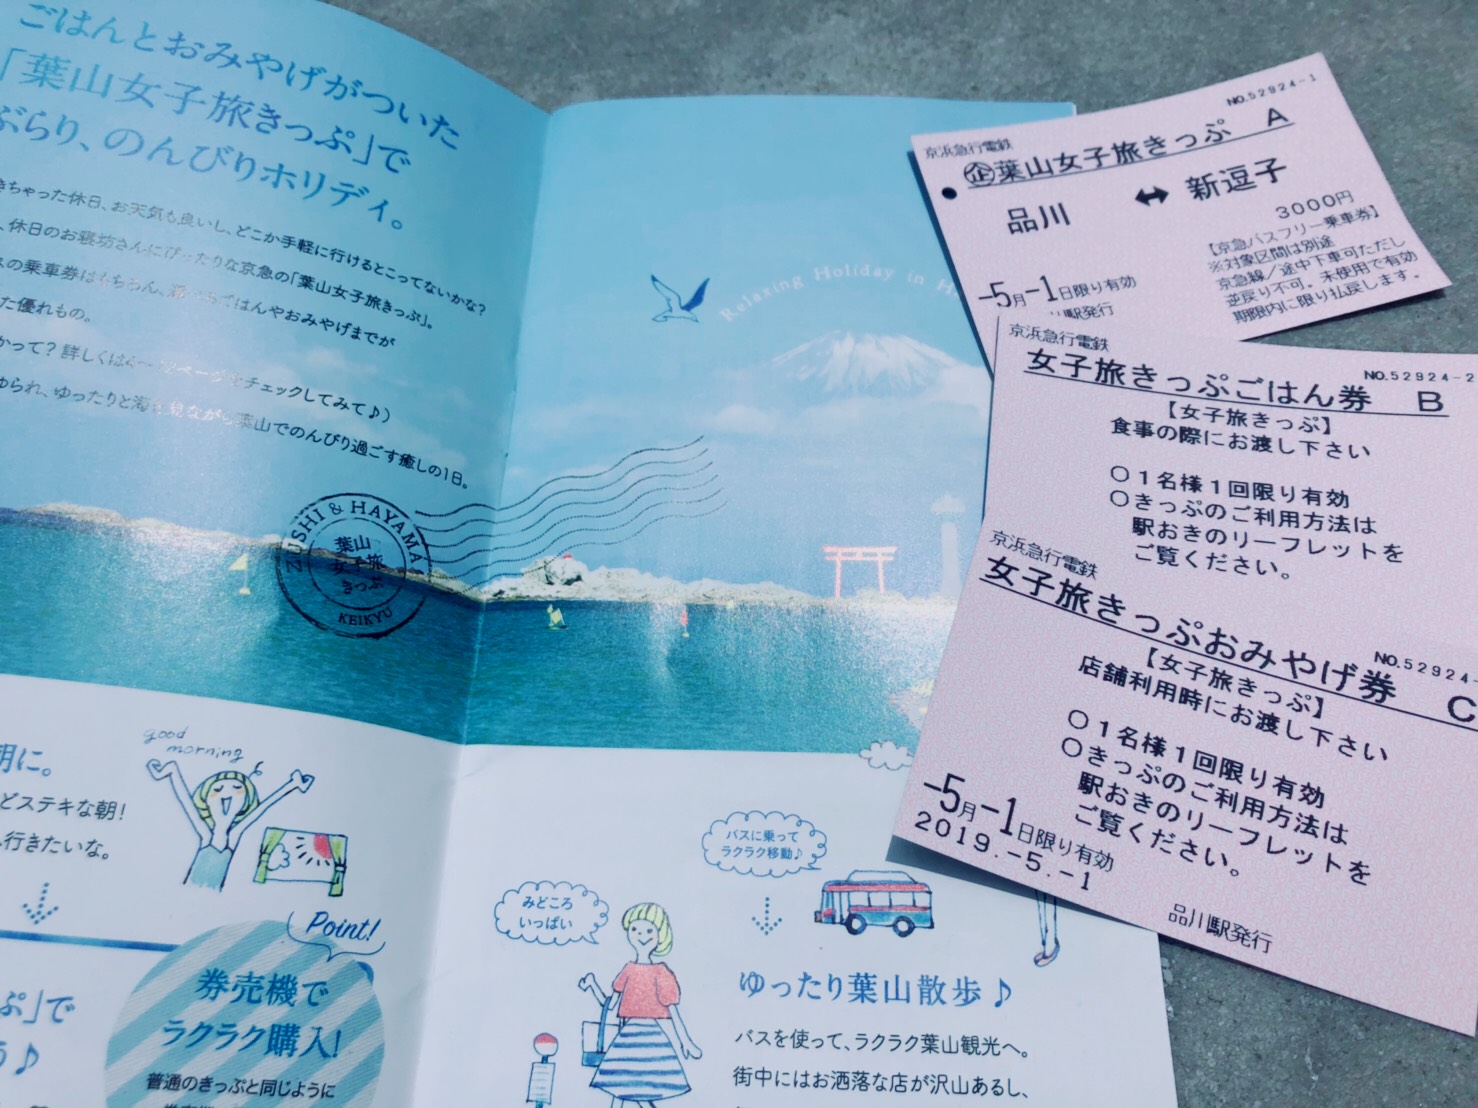 ごはんとおみやげがついた
「葉山女子旅きっぷ」で
ぶらり、のんびりホリディ。
きちゃった休日、お天気も良いし、どこか手軽に行けるとこってないかな?
、休日のお寝坊さんにぴったりな京急の「葉山女子旅きっぷ」。
の乗車券はもちろん、
ごはんやおみやげまでが
た優れもの。
かって?詳しくは
ページをチェックしてみて♪)
ゆられ、ゆったりと海を見ながら葉山でのんびり過ごす癒しの1日。
Relaxing Holiday in
ZUSHI & HAYAMA
葉山
女子旅
きっぷ
KEIKYU
朝に。
どステキな朝!
行きたいな。
good
morning
Point!
券売機で
ラクラク購入!
普通のきっぷと同じように
ぷ」で
う♪
みどころ
いっぱい
バスに乗って
ラクラク移動♪
ゆったり葉山散歩♪
バスを使って、ラクラク葉山観光へ。
街中にはお洒落な店が沢山あるし、
NO.52924-1
京浜急行電鉄
㊭葉山女子旅きっぷ A
品川 ⇔ 新逗子
3000円
【京急バスフリー乗車券】
※対象区間は別途
京急線/途中下車可ただし
逆戻り不可。未使用で有効
期限内に限り払戻します。
-5月-1日限り有効
駅発行
京浜急行電鉄
NO.52924-2
女子旅きっぷごはん券 B
【女子旅きっぷ】
食事の際にお渡し下さい
○1名様1回限り有効
○きっぷのご利用方法は
駅おきのリーフレットを
ご覧ください。
京浜急行電鉄
NO.52924-
女子旅きっぷおみやげ券 C
【女子旅きっぷ】
店舗利用時にお渡し下さい
○1名様1回限り有効
○きっぷのご利用方法は
駅おきのリーフレットを
ご覧ください。
-5月-1日限り有効
2019.-5.-1
品川駅発行